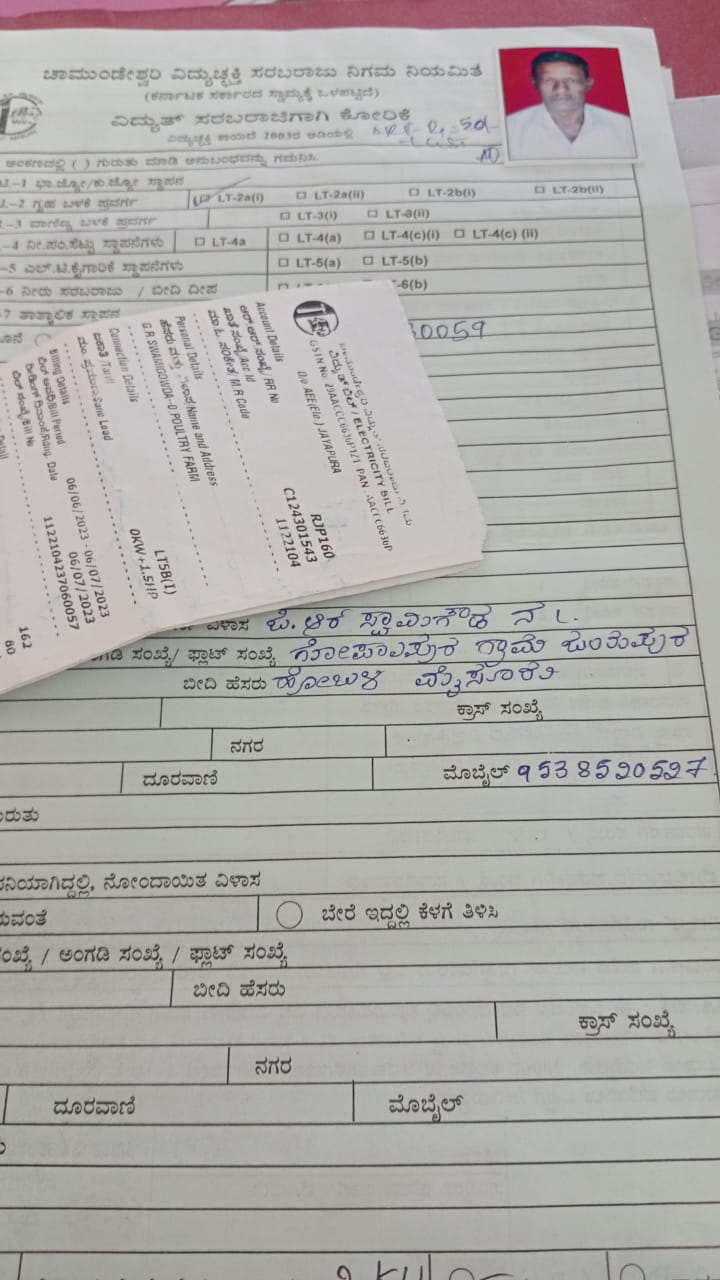 ಚಾಮುಂಡೇಶ್ವರಿ ವಿದ್ಯುಚ್ಛಕ್ತಿ ಸರಬರಾಜು ನಿಗಮ ನಿಯಮಿತ
(ಕರ್ನಾಟಕ ಸರ್ಕಾರದ ಸ್ವಾಮ್ಯಕ್ಕೆ ಒಳಪಟ್ಟಿದೆ)
ವಿದ್ಯುತ್ ಸರಬರಾಜಿಗಾಗಿ ಕೋರಿಕೆ
ವಿದ್ಯುಚ್ಛಕ್ತಿ ಕಾಯಿದೆ 2003ರ ಅಡಿಯಲ್ಲಿ
ಅಂಕಣದಲ್ಲಿ ( ) ಗುರುತು ಮಾಡಿ ಅನುಬಂಧವನ್ನು ಗಮನಿಸಿ.
-1 ಭಾ.ಜ್ಯೋ/ಕು.ಜ್ಯೋ ಸ್ಥಾಪನ
-2 ಗೃಹ ಬಳಕೆ ಪ್ರವರ್ಗ LT-2a(i) LT-2a(ii) LT-2b(i) LT-2b(ii)
-3 ವಾಣಿಜ್ಯ ಬಳಕೆ ಪ್ರವರ್ಗ LT-3(i) LT-3(ii)
-4 ನೀ.ಪಂ.ಸೆಟ್ಟು ಸ್ಥಾಪನೆಗಳು LT-4a LT-4(a) LT-4(c)(i) LT-4(c) (ii)
-5 ಎಲ್.ಟಿ.ಕೈಗಾರಿಕೆ ಸ್ಥಾಪನೆಗಳು LT-5(a) LT-5(b)
-6 ನೀರು ಸರಬರಾಜು / ಬೀದಿ ದೀಪ -6(b)
-7 ತಾತ್ಕಾಲಿಕ ಸ್ಥಾಪನ
30059
ವಿದ್ಯುತ್ ಬಿಲ್ / ELECTRICITY BILL
GSTIN No. PAN
O/o AEE(Ele.) JAYAPURA
Account Details
ಆರ್.ಆರ್.ಸಂಖ್ಯೆ/ RR No RJP160
ಖಾತೆ ಸಂಖ್ಯೆ/Acc Id C124301543
ಮಾ.ಓ. ಸಂಕೇತ/ M.R.Code 1122104
Personal Details
ಹೆಸರು Name and Address
G.R.SWAMIGOWDA-D POULTRY FARM
Connection Details
ಜಕಾತಿ /Tariff LT5B(I)
ಮಂ. ಪ್ರಮಾಣ/Sanc Load 0KW+1.5HP
Billing Details
ಬಿಲ್ ಅವಧಿ/Bill Period 06/06/2023 - 06/07/2023
ರೀಡಿಂಗ್ ದಿನಾಂಕ/Rdng. Date 06/07/2023
ಬಿಲ್ ಸಂಖ್ಯೆ/Bill No 1122104237060057
162
80
ವಿಳಾಸ ಜಿ. ಆರ್ ಸ್ವಾಮಿಗೌಡ
ಅಂಗಡಿ ಸಂಖ್ಯೆ/ ಫ್ಲಾಟ್ ಸಂಖ್ಯೆ ಗೋಪಾಲಪುರ ಗ್ರಾಮ ಜಯಪುರ
ಬೀದಿ ಹೆಸರು ಹೋಬಳಿ ಮೈಸೂರು
ಕ್ರಾಸ್ ಸಂಖ್ಯೆ
ನಗರ
ದೂರವಾಣಿ ಮೊಬೈಲ್ 9538520527
ಗುರುತು
ಕಂಪನಿಯಾಗಿದ್ದಲ್ಲಿ, ನೋಂದಾಯಿತ ವಿಳಾಸ
ರುವಂತೆ ಬೇರೆ ಇದ್ದಲ್ಲಿ ಕೆಳಗೆ ತಿಳಿಸಿ
ಸಂಖ್ಯೆ / ಅಂಗಡಿ ಸಂಖ್ಯೆ / ಫ್ಲಾಟ್ ಸಂಖ್ಯೆ
ಬೀದಿ ಹೆಸರು
ಕ್ರಾಸ್ ಸಂಖ್ಯೆ
ನಗರ
ದೂರವಾಣಿ ಮೊಬೈಲ್